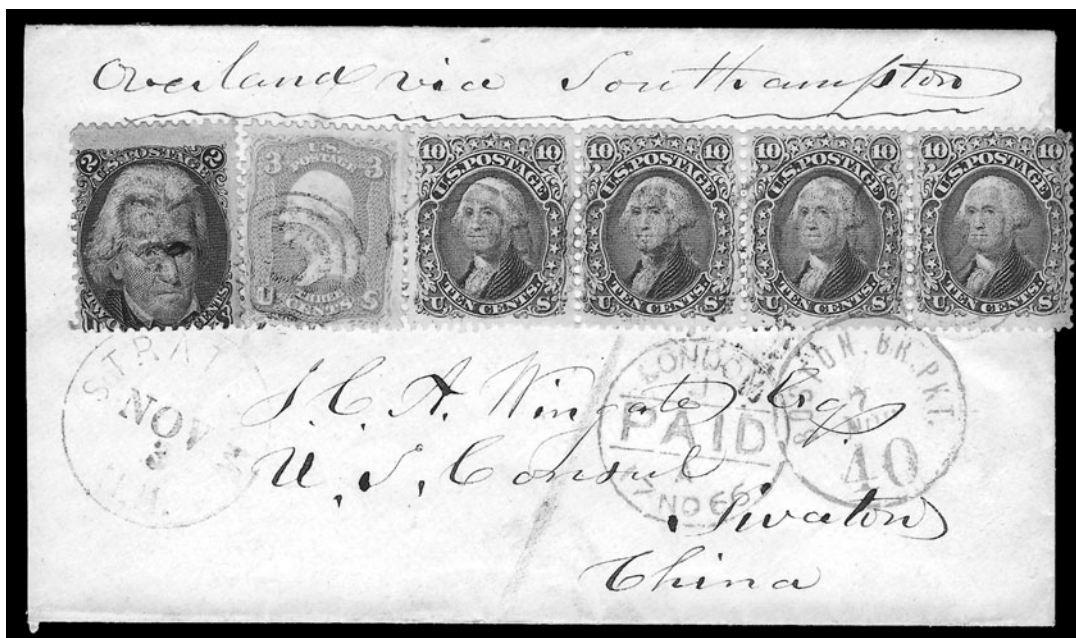 Overland via Southampton
2 U.S. POSTAGE 2
3 U.S. POSTAGE 3
U THREE CENTS S
10 U.S. POSTAGE 10
U TEN CENTS S
10 U.S. POSTAGE 10
U TEN CENTS S
10 U.S. POSTAGE 10
U TEN CENTS S
10 U.S. POSTAGE 10
U TEN CENTS S
NOV
LONDON
PAID
NO 66
BOSTON. BR. PKT.
NOV
40
J. C. A. Wingate Esq.
U. S. Consul
Swaton
China